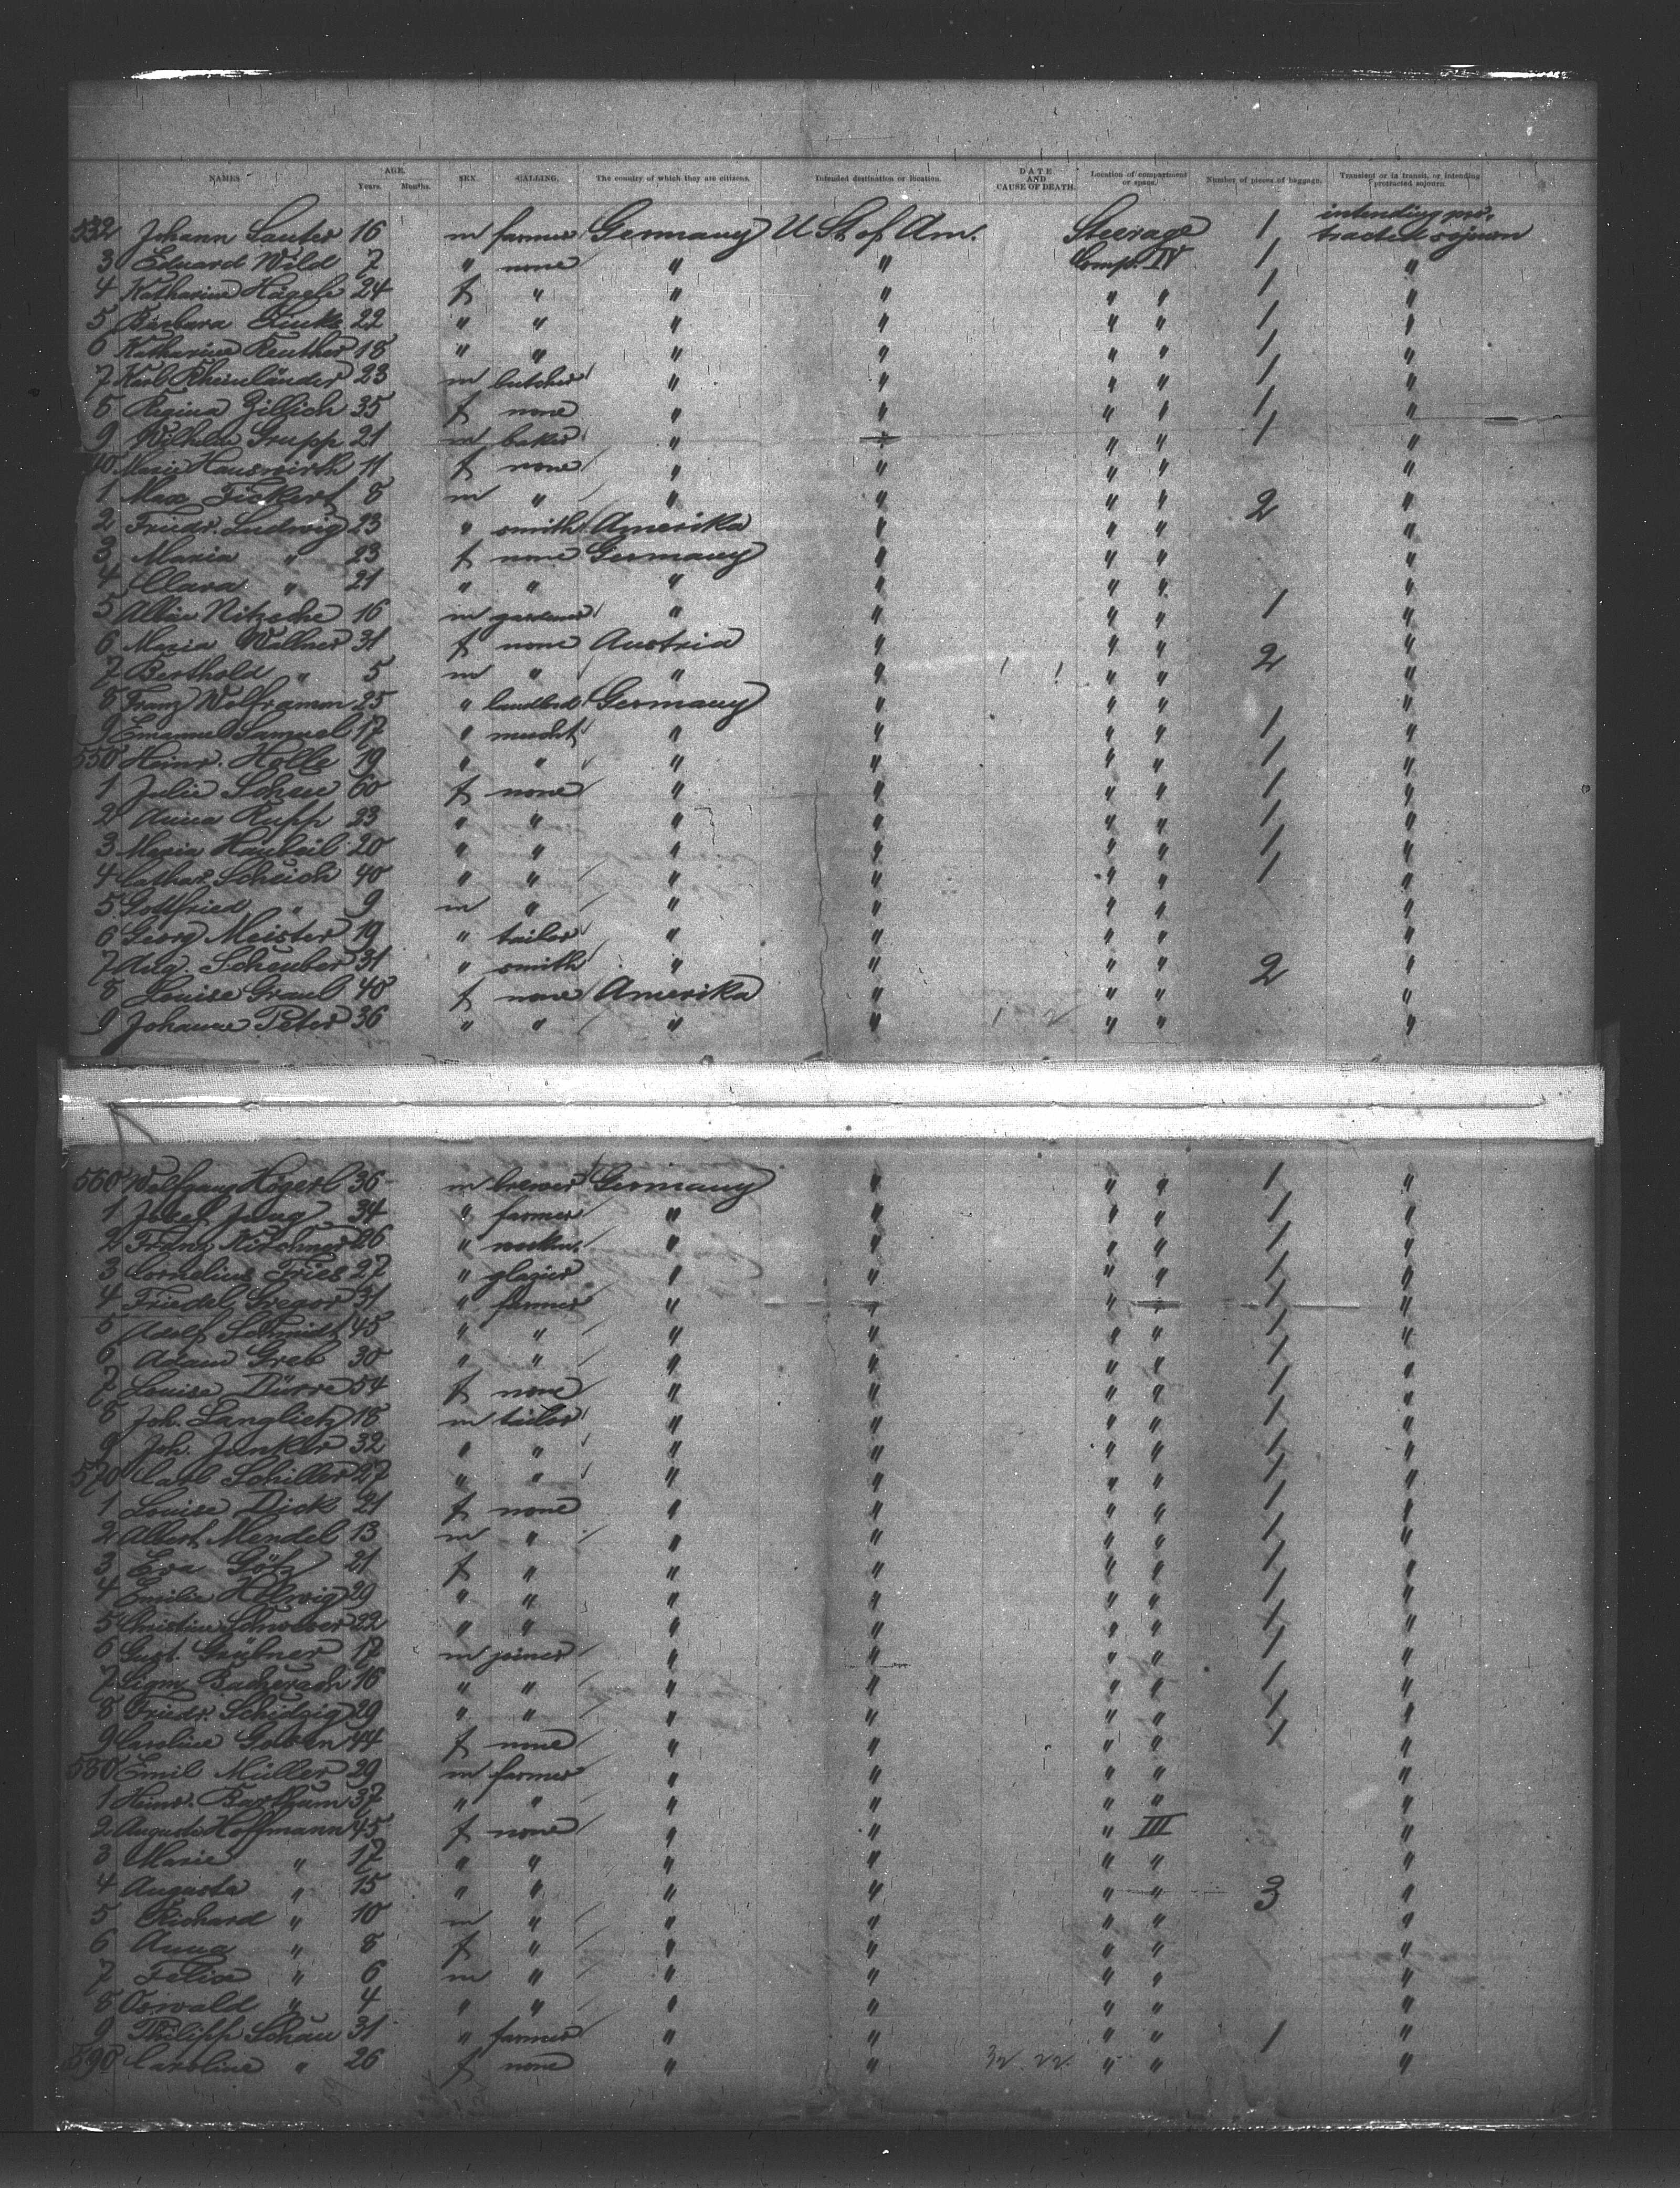 NAMES AGE. Years. Months. SEX. CALLING. The country of which they are citizens. Intended destination or location. DATE AND CAUSE OF DEATH. Location of compartment or space. Number of pieces of baggage. Transient or in transit, or intending protracted sojourn.
532 Johann Sauter 16 m farmer Germany U St of Am. Steerage 1 intending protracted sojourn
3 Eduard Wild 7 " none " " Comp. IV 1 "
4 Katharine Hägele 24 f " " " " " 1 "
5 Barbara 22 " " " " " " 1 "
6 Katharine Reuther 18 " " " " " " 1 "
7 Karl Rheinländer 23 m butcher " " " " 1 "
8 Regina Zillich 35 f none " " " " 1 "
9 Wilhelm Grupp 21 m baker " " " " 1 "
40 Marie Hauswirth 11 f none " " " " "
1 Max Fickert 8 m " " " " " 2 "
2 Friedr. Ludwig 23 " smith Amerika " " " "
3 Maria " 23 f none Germany " " " "
4 Clara " 21 " " " " " " "
5 Albin Nitzsche 16 m gardener " " " " 1 "
6 Maria Wallner 31 f none Austria " " " 2 "
7 Berthold " 5 m " " " " " "
8 Franz Wolframm 25 " landlord Germany " " " "
9 Emanuel Samuel 17 " mercht " " " " 1 "
550 Heinr. Holle 19 " " " " " " 1 "
1 Julie Schau 60 f none " " " " 1 "
2 Anna Rupp 23 " " " " " " 1 "
3 Maria 20 " " " " " " 1 "
4 Cathar. Scheich 40 " " " " " " 1 "
5 Gottfried " 9 m " " " " " "
6 Georg Meister 19 " tailor " " " " "
7 Aug. Scheuber 31 " smith " " " " 2 "
8 Louise Graul 40 f none Amerika " " " "
9 Johanne Peter 36 " " " " " " "
560 Wolfgang Högerl 36 m brewer Germany " " " 1 "
1 Josef Jung 34 " farmer " " " " 1 "
2 Franz Kirchner 26 " " " " " 1 "
3 Cornelius Fries 27 " glazier " " " " 1 "
4 Friedel Gregor 31 " farmer " " " " 1 "
5 Adolf Schmidt 45 " " " " " " 1 "
6 Adam Greb 30 " " " " " " 1 "
7 Louise Dürre 54 f none " " " " 1 "
8 Joh. Langlietz 18 m tailor " " " " 1 "
9 Joh. Junker 32 " " " " " " 1 "
570 Carl Schiller 27 " " " " " " 1 "
1 Louise Dick 21 f none " " " " 1 "
2 Albert Mendel 13 m " " " " " 1 "
3 Eva Götz 21 f " " " " " 1 "
4 Emilie Helwig 29 " " " " " " 1 "
5 Christine 22 " " " " " " 1 "
6 Gust. Grübner 17 m joiner " " " " 1 "
7 Sigm. Bacherach 16 " " " " " " 1 "
8 Friedr. Schidzig 29 " " " " " " 1 "
9 Caroline 44 f none " " " " 1 "
580 Emil Müller 29 m farmer " " " " "
1 Heinr. Bartham 37 " " " " " " "
2 Auguste Hoffmann 45 f none " " " III "
3 Marie " 17 " " " " " " "
4 Augusta " 15 " " " " " " 3 "
5 Richard " 10 m " " " " " "
6 Anna " 8 f " " " " " "
7 Felix " 6 m " " " " " "
8 Oswald " 4 " " " " " " "
9 Philipp Schau 31 " farmer " " " " 1 "
590 Caroline " 26 f none " " " " "